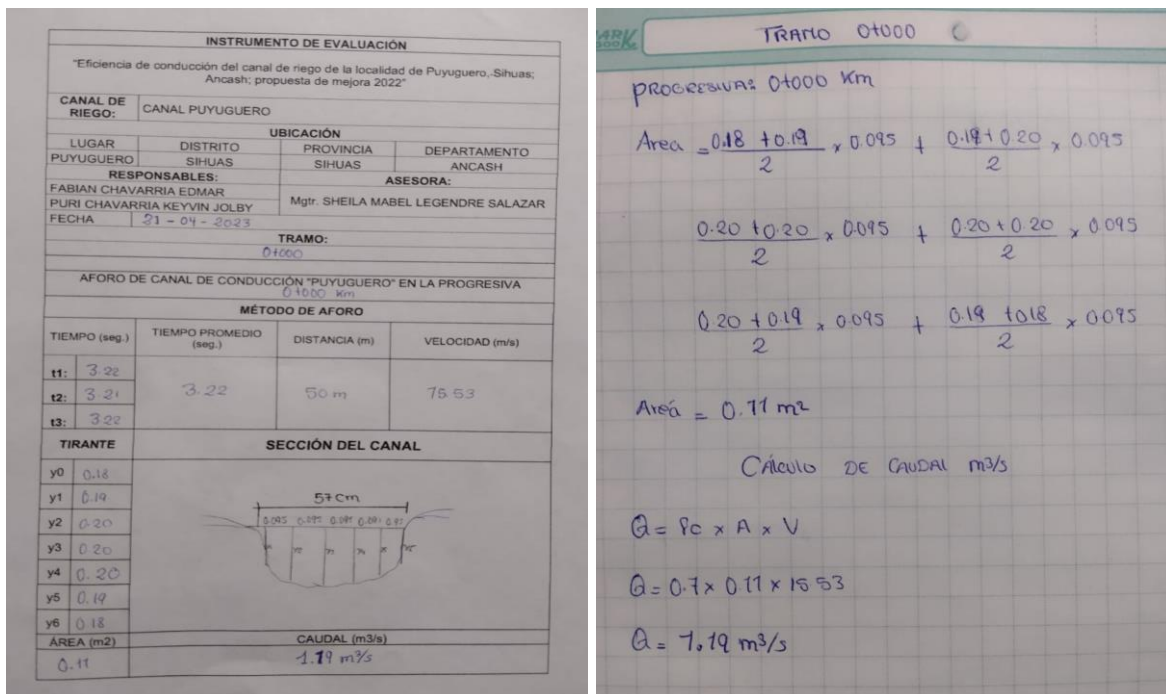 INSTRUMENTO DE EVALUACIÓN
"Eficiencia de conducción del canal de riego de la localidad de Puyuguero, Sihuas;
Ancash; propuesta de mejora 2022"
CANAL DE RIEGO: CANAL PUYUGUERO
UBICACIÓN
LUGAR DISTRITO PROVINCIA DEPARTAMENTO
PUYUGUERO SIHUAS SIHUAS ANCASH
RESPONSABLES: ASESORA:
FABIAN CHAVARRIA EDMAR
PURI CHAVARRIA KEYVIN JOLBY Mgtr. SHEILA MABEL LEGENDRE SALAZAR
FECHA 21 - 04 - 2023
TRAMO:
0+000
AFORO DE CANAL DE CONDUCCIÓN "PUYUGUERO" EN LA PROGRESIVA
0+000 Km
MÉTODO DE AFORO
TIEMPO (seg.) TIEMPO PROMEDIO (seg.) DISTANCIA (m) VELOCIDAD (m/s)
t1: 3.22
t2: 3.21 3.22 50 m 15.53
t3: 3.22
TIRANTE SECCIÓN DEL CANAL
y0 0.18
y1 0.19
57 cm
y2 0.20
0.095 0.095 0.095
y3 0.20
y4 0.20
y5 0.19
y6 0.18
ÁREA (m2) CAUDAL (m3/s)
0.11 1.19 m³/s
TRAMO 0+000
PROGRESIVA: 0+000 Km
Area = 0.18 + 0.19 / 2 x 0.095 + 0.19 + 0.20 / 2 x 0.095
0.20 + 0.20 / 2 x 0.095 + 0.20 + 0.20 / 2 x 0.095
0.20 + 0.19 / 2 x 0.095 + 0.19 + 0.18 / 2 x 0.095
Areá = 0.11 m²
CÁlculo DE CAUDAL m3/s
Q = Fc x A x V
Q = 0.7 x 0.11 x 15.53
Q = 1.19 m³/s